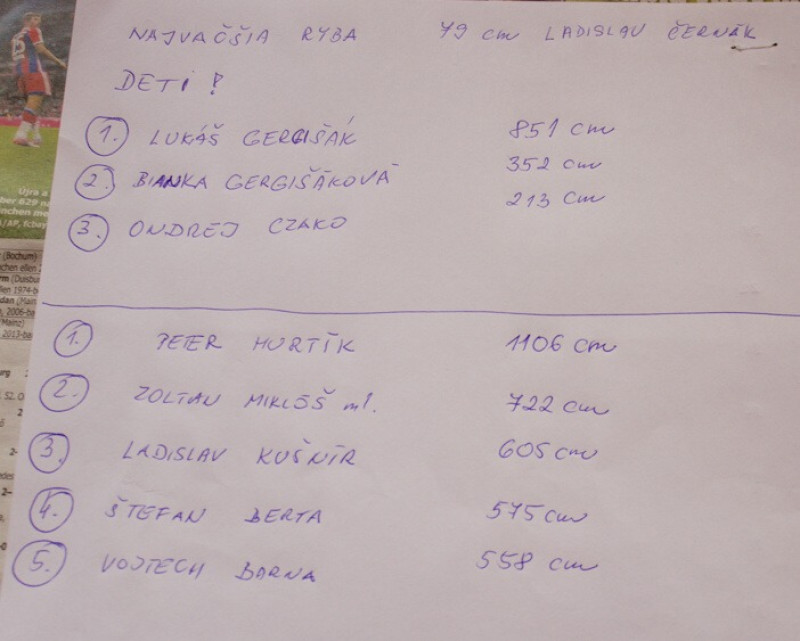 NAJVAČŠIA RYBA 79 cm LADISLAV ČERNÁK
DETI !
1. LUKÁŠ GERGIŠÁK 851 cm
2. BIANKA GERGIŠÁKOVÁ 352 cm
3. ONDREJ CZAKO 213 cm
1. PETER HURTÍK 1106 cm
2. ZOLTAN MIKLÓŠ ml. 722 cm
3. LADISLAV KUŠNÍR 605 cm
4. ŠTEFAN BERTA 575 cm
5. VOJTECH BARNA 558 cm
Újra a
ber 629 na
nchen me
/AP, fcbay
(Bochum)
chen ellen
rm (Duisbu
llen 1974-b
dan (Main
, 2006-ba
(Mainz)
2013-ba